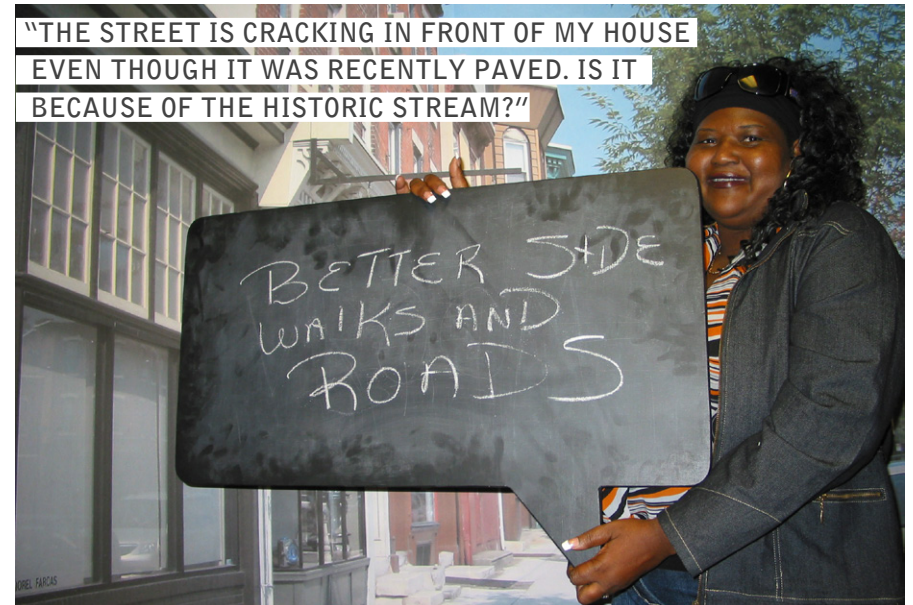 “THE STREET IS CRACKING IN FRONT OF MY HOUSE
EVEN THOUGH IT WAS RECENTLY PAVED. IS IT
BECAUSE OF THE HISTORIC STREAM?”
BETTER SIDE
WALKS AND
ROADS
DOREL FARCAS